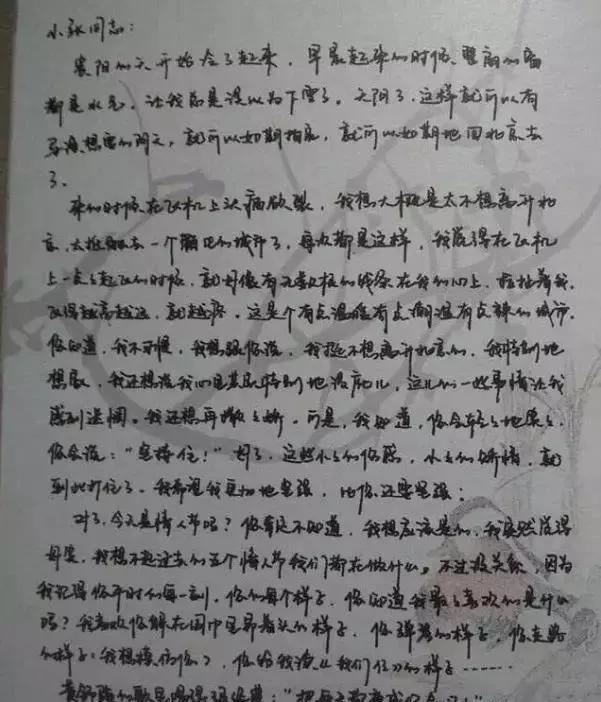 小张同志：
襄阳的天开始冷了起来，早晨起来的时候，整面的窗
都是水儿，让我总是误以为下雪了。天阴了，这样就可以有
导演想要的阴天，就可以如期拍完，就可以如期地回北京去
了。
来的时候在飞机上头痛欲裂，我想大概是太不想离开北
京，太抵触去一个陌生的城市了，每次都是这样，我觉得在飞机
上一点点起飞的时候，就好像有无数根的线系在我的心上，拉扯着我，
飞得越高越远，就越疼。这是个有点温暖有点潮湿有点辣的城市，
你知道，我不习惯，我想跟你说，我挺不想离开北京的，我特别地
想家，我还想说我心里其实特别地没底儿，这儿的一些事情让我
感到迷惘。我还想再撒撒娇。可是，我知道，你会轻轻地
你会说："坚持住！"好了，这些小小的伤感，小小的矫情，就
到此打住了。我希望我更加地坚强，比你还要坚强：
对了，今天是情人节吗？你肯定不知道，我想应该是的，我突然觉得
我想不起过去的五个情人节我们都在做什么。不过没关系，因为
我记得你平时的每一刻，你的每个样子，你知道我最喜欢的是什么
吗？我喜欢你躺在围巾里昂着头的样子，你弹琴的样子，你走路
的样子（我想模仿你），你给我读《我们俩》的样子……
黄舒骏的歌里唱得很浪漫："把每天都变成